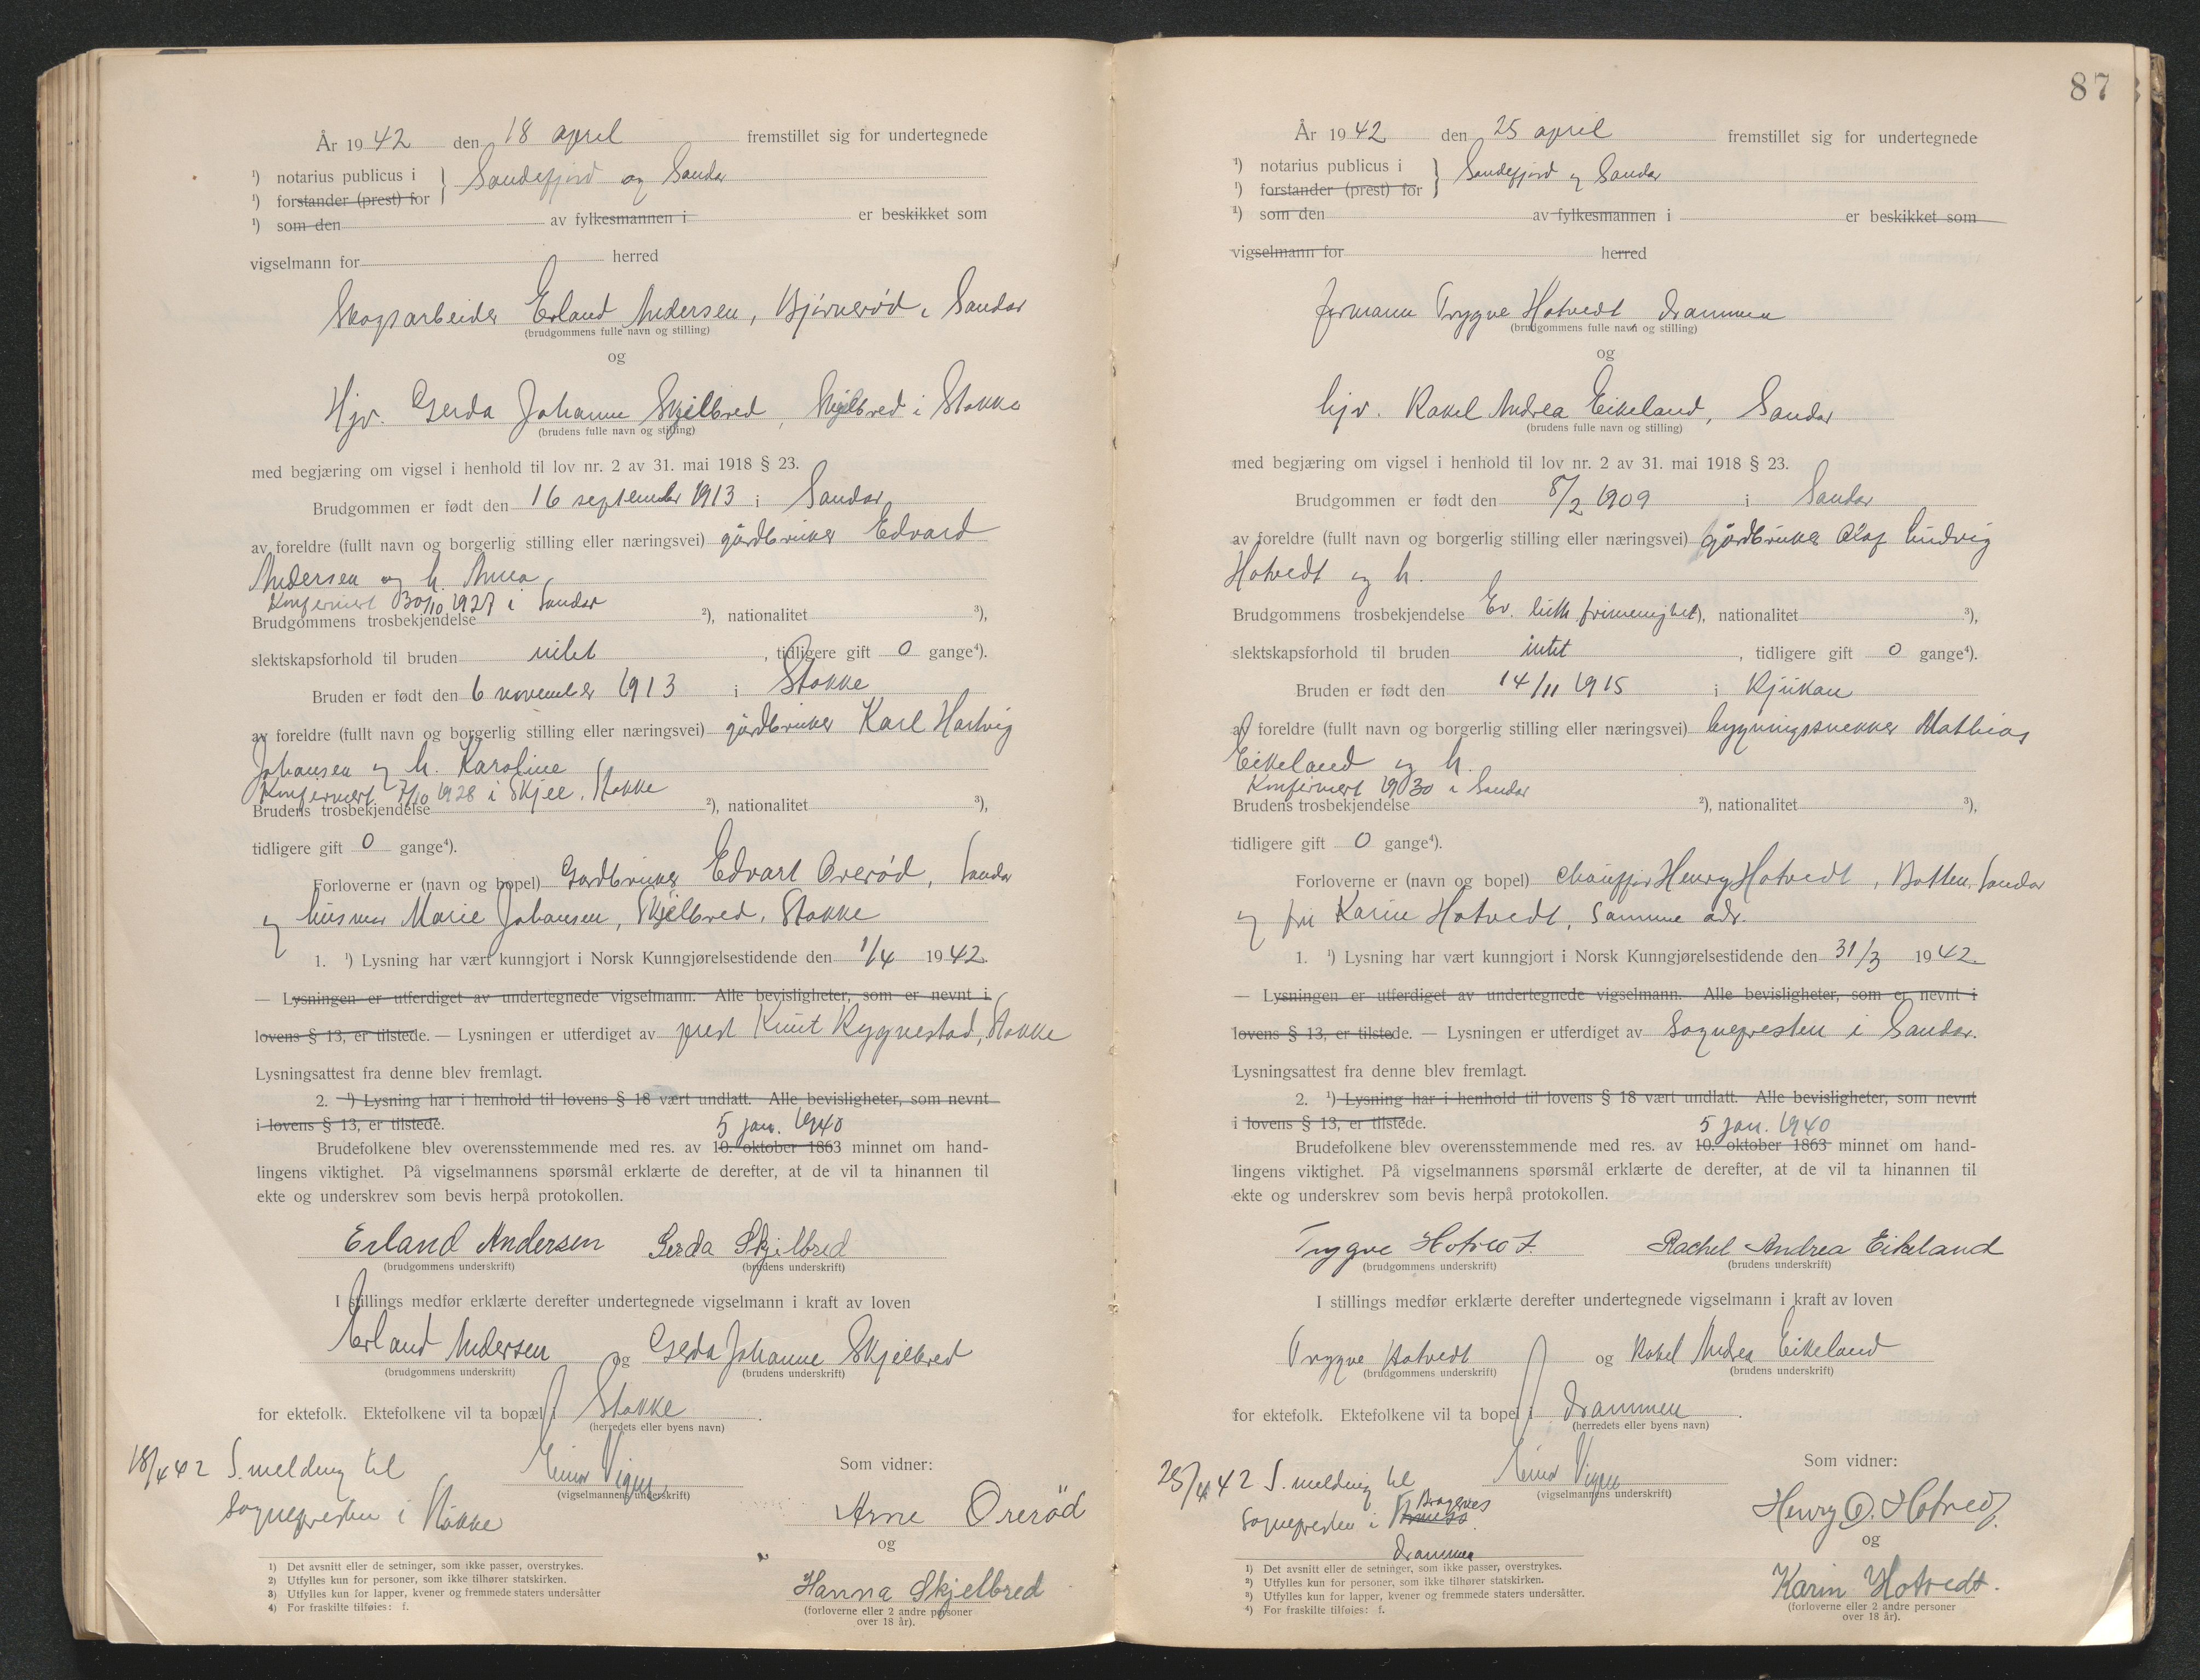 År 1942 den 18 april fremstillet sig for undertegnede
¹) notarius publicus i } Sandefjord og Sandar
¹) forstander (prest) for
¹) som den av fylkesmannen i er beskikket som
vigselmann for herred
Skogsarbeider Erland Andersen, Bjørnerød i Sandar
(brudgommens fulle navn og stilling)
og
Hjv. Gerda Johanne Skjelbred, Skjelbred i Stokke
(brudens fulle navn og stilling)
med begjæring om vigsel i henhold til lov nr. 2 av 31. mai 1918 § 23.
Brudgommen er født den 16 september 1913 i Sandar
av foreldre (fullt navn og borgerlig stilling eller næringsvei) gårdbruker Edvard
Andersen og h. Anna
Konfirmert 30/10 1927 i Sandar
Brudgommens trosbekjendelse ²), nationalitet ³),
slektskapsforhold til bruden intet, tidligere gift 0 gange⁴).
Bruden er født den 6 november 1913 i Stokke
av foreldre (fullt navn og borgerlig stilling eller næringsvei) gårdbruker Karl Hartvig
Johansen og h. Karoline
Konfirmert 7/10 1928 i Skjee, Stokke
Brudens trosbekjendelse ²), nationalitet ³),
tidligere gift 0 gange⁴).
Forloverne er (navn og bopel) Gardbruker Edvart Orerød, Sandar
og husmor Marie Johansen, Skjelbred, Stokke
1. ¹) Lysning har vært kunngjort i Norsk Kunngjørelsestidende den 1/4 1942.
— Lysningen er utferdiget av undertegnede vigselmann. Alle bevisligheter, som er nevnt i
lovens § 13, er tilstede. — Lysningen er utferdiget av prest Knut Rygnestad, Stokke
Lysningsattest fra denne blev fremlagt.
2. ¹) Lysning har i henhold til lovens § 18 vært undlatt. Alle bevisligheter, som nevnt
i lovens § 13, er tilstede. 5 jan. 1940
Brudefolkene blev overensstemmende med res. av 10. oktober 1863 minnet om hand-
lingens viktighet. På vigselmannens spørsmål erklærte de derefter, at de vil ta hinannen til
ekte og underskrev som bevis herpå protokollen.
Erland Andersen Gerda Skjelbred
(brudgommens underskrift) (brudens underskrift)
I stillings medfør erklærte derefter undertegnede vigselmann i kraft av loven
Erland Andersen og Gerda Johanne Skjelbred
(brudgommens underskrift) (brudens underskrift)
for ektefolk. Ektefolkene vil ta bopæl i Stokke.
(herredets eller byens navn)
18/4 42 S. melding til
sognepresten i Stokke
Einar
(vigselmannens underskrift)
Som vidner:
Arne Orerød
og
Hanna Skjelbred
(forloverne eller 2 andre personer
over 18 år).
1) Det avsnitt eller de setninger, som ikke passer, overstrykes.
2) Utfylles kun for personer, som ikke tilhører statskirken.
3) Utfylles kun for lapper, kvener og fremmede staters undersåtter
4) For fraskilte tilføies: f.
87
År 1942 den 25 april fremstillet sig for undertegnede
¹) notarius publicus i } Sandefjord og Sandar
¹) forstander (prest) for
¹) som den av fylkesmannen i er beskikket som
vigselmann for herred
formann Trygve Hotvedt Drammen
(brudgommens fulle navn og stilling)
og
hjv. Rakel Andrea Eikeland, Sandar
(brudens fulle navn og stilling)
med begjæring om vigsel i henhold til lov nr. 2 av 31. mai 1918 § 23.
Brudgommen er født den 8/2 1909 i Sandar
av foreldre (fullt navn og borgerlig stilling eller næringsvei) Gårdbruker Olaf Ludvig
Hotvedt og h.
Brudgommens trosbekjendelse Ev. luth frimenighet ²), nationalitet ³),
slektskapsforhold til bruden intet, tidligere gift 0 gange⁴).
Bruden er født den 14/11 1915 i Rjukan
av foreldre (fullt navn og borgerlig stilling eller næringsvei) bygningssnekker Mathias
Eikeland og h.
Konfirmert 1930 i Sandar
Brudens trosbekjendelse ²), nationalitet ³),
tidligere gift 0 gange⁴).
Forloverne er (navn og bopel) chauffør Henry Hotvedt, Botten, Sandar
og fru Karin Hotvedt, samme adr.
1. ¹) Lysning har vært kunngjort i Norsk Kunngjørelsestidende den 31/3 1942.
— Lysningen er utferdiget av undertegnede vigselmann. Alle bevisligheter, som er nevnt i
lovens § 13, er tilstede. — Lysningen er utferdiget av Sognepresten i Sandar.
Lysningsattest fra denne blev fremlagt.
2. ¹) Lysning har i henhold til lovens § 18 vært undlatt. Alle bevisligheter, som nevnt
i lovens § 13, er tilstede. 5 jan. 1940
Brudefolkene blev overensstemmende med res. av 10. oktober 1863 minnet om hand-
lingens viktighet. På vigselmannens spørsmål erklærte de derefter, at de vil ta hinannen til
ekte og underskrev som bevis herpå protokollen.
Trygve Hotvedt. Rachel Andrea Eikeland
(brudgommens underskrift) (brudens underskrift)
I stillings medfør erklærte derefter undertegnede vigselmann i kraft av loven
Trygve Hotvedt og Rakel Andrea Eikeland
(brudgommens underskrift) (brudens underskrift)
for ektefolk. Ektefolkene vil ta bopel i Drammen.
(herredets eller byens navn)
25/4 42 S. melding til
sognepresten i Bragernes
Drammen
Einar
(vigselmannens underskrift)
Som vidner:
Henry O. Hotvedt
og
Karin Hotvedt.
(forloverne eller 2 andre personer
over 18 år).
1) Det avsnitt eller de setninger, som ikke passer, overstrykes.
2) Utfylles kun for personer, som ikke tilhører statskirken.
3) Utfylles kun for lapper, kvener og fremmede staters undersåtter.
4) For fraskilte tilføies: f.